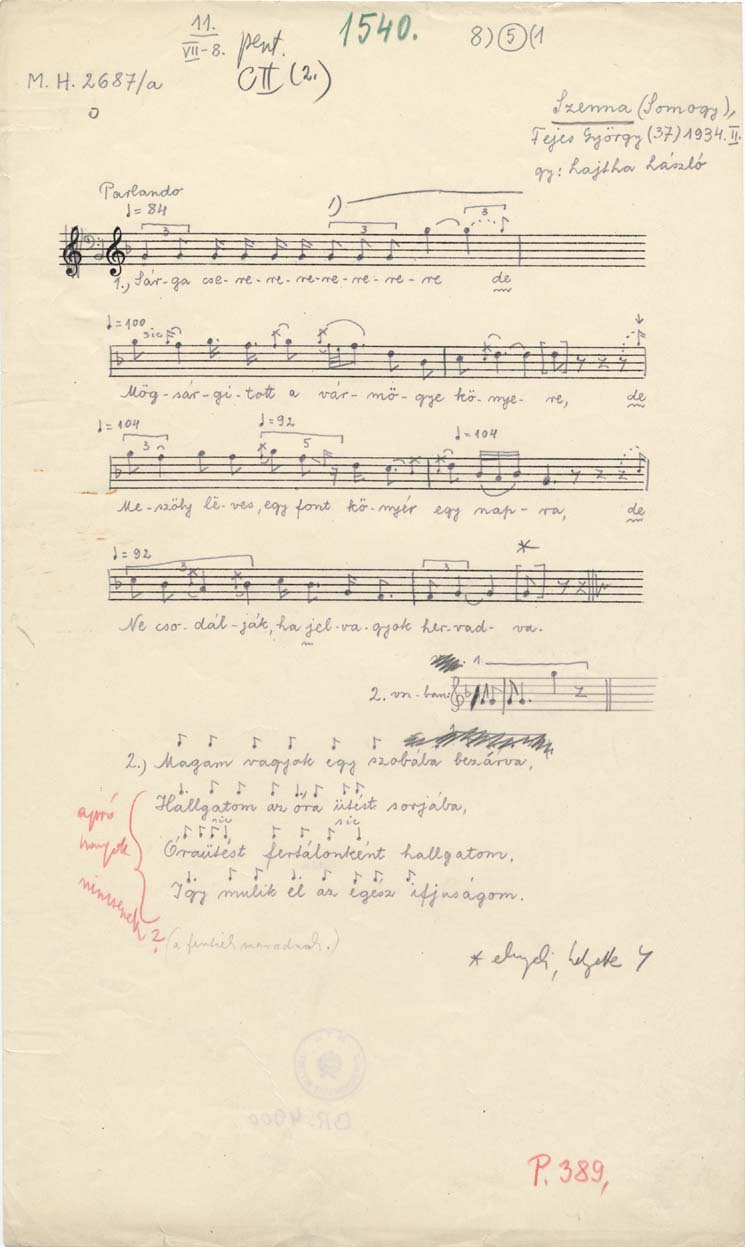 11.
VII-8. pent.
1540.
8) 5 (1
M. H. 2687/a
CII (2.)
o
Szenna (Somogy),
Fejes György (37) 1934. II.
gy: Lajtha László
Parlando
♩= 84
1)
3 3 3
1., Sár-ga cse-re-re-re-re-re-re-re de
♩=100
sic
Mög-sár-gi-tott a vár-mö-gye kö-nye-re, de
♩=104 ♩=92 ♩=104
3 5
Me-szöly lë-ves, egy font kö-nyér egy nap-ra, de
♩=92
3 3 *
Ne cso-dál-ják, ha jel-va-gyok her-vad-va.
1
2. vsz-ban:
2.) Magam vagyok egy szobába bezárva,
Hallgatom az óra ütést sorjába,
sic sic
Óraütést fertálonként hallgatom,
Igy mulik el az egész ifjuságom.
apró
hangok
nincsenek
?
(a fentiek maradnak.)
* elnyeli, helyette
BR. 4000
P. 389,